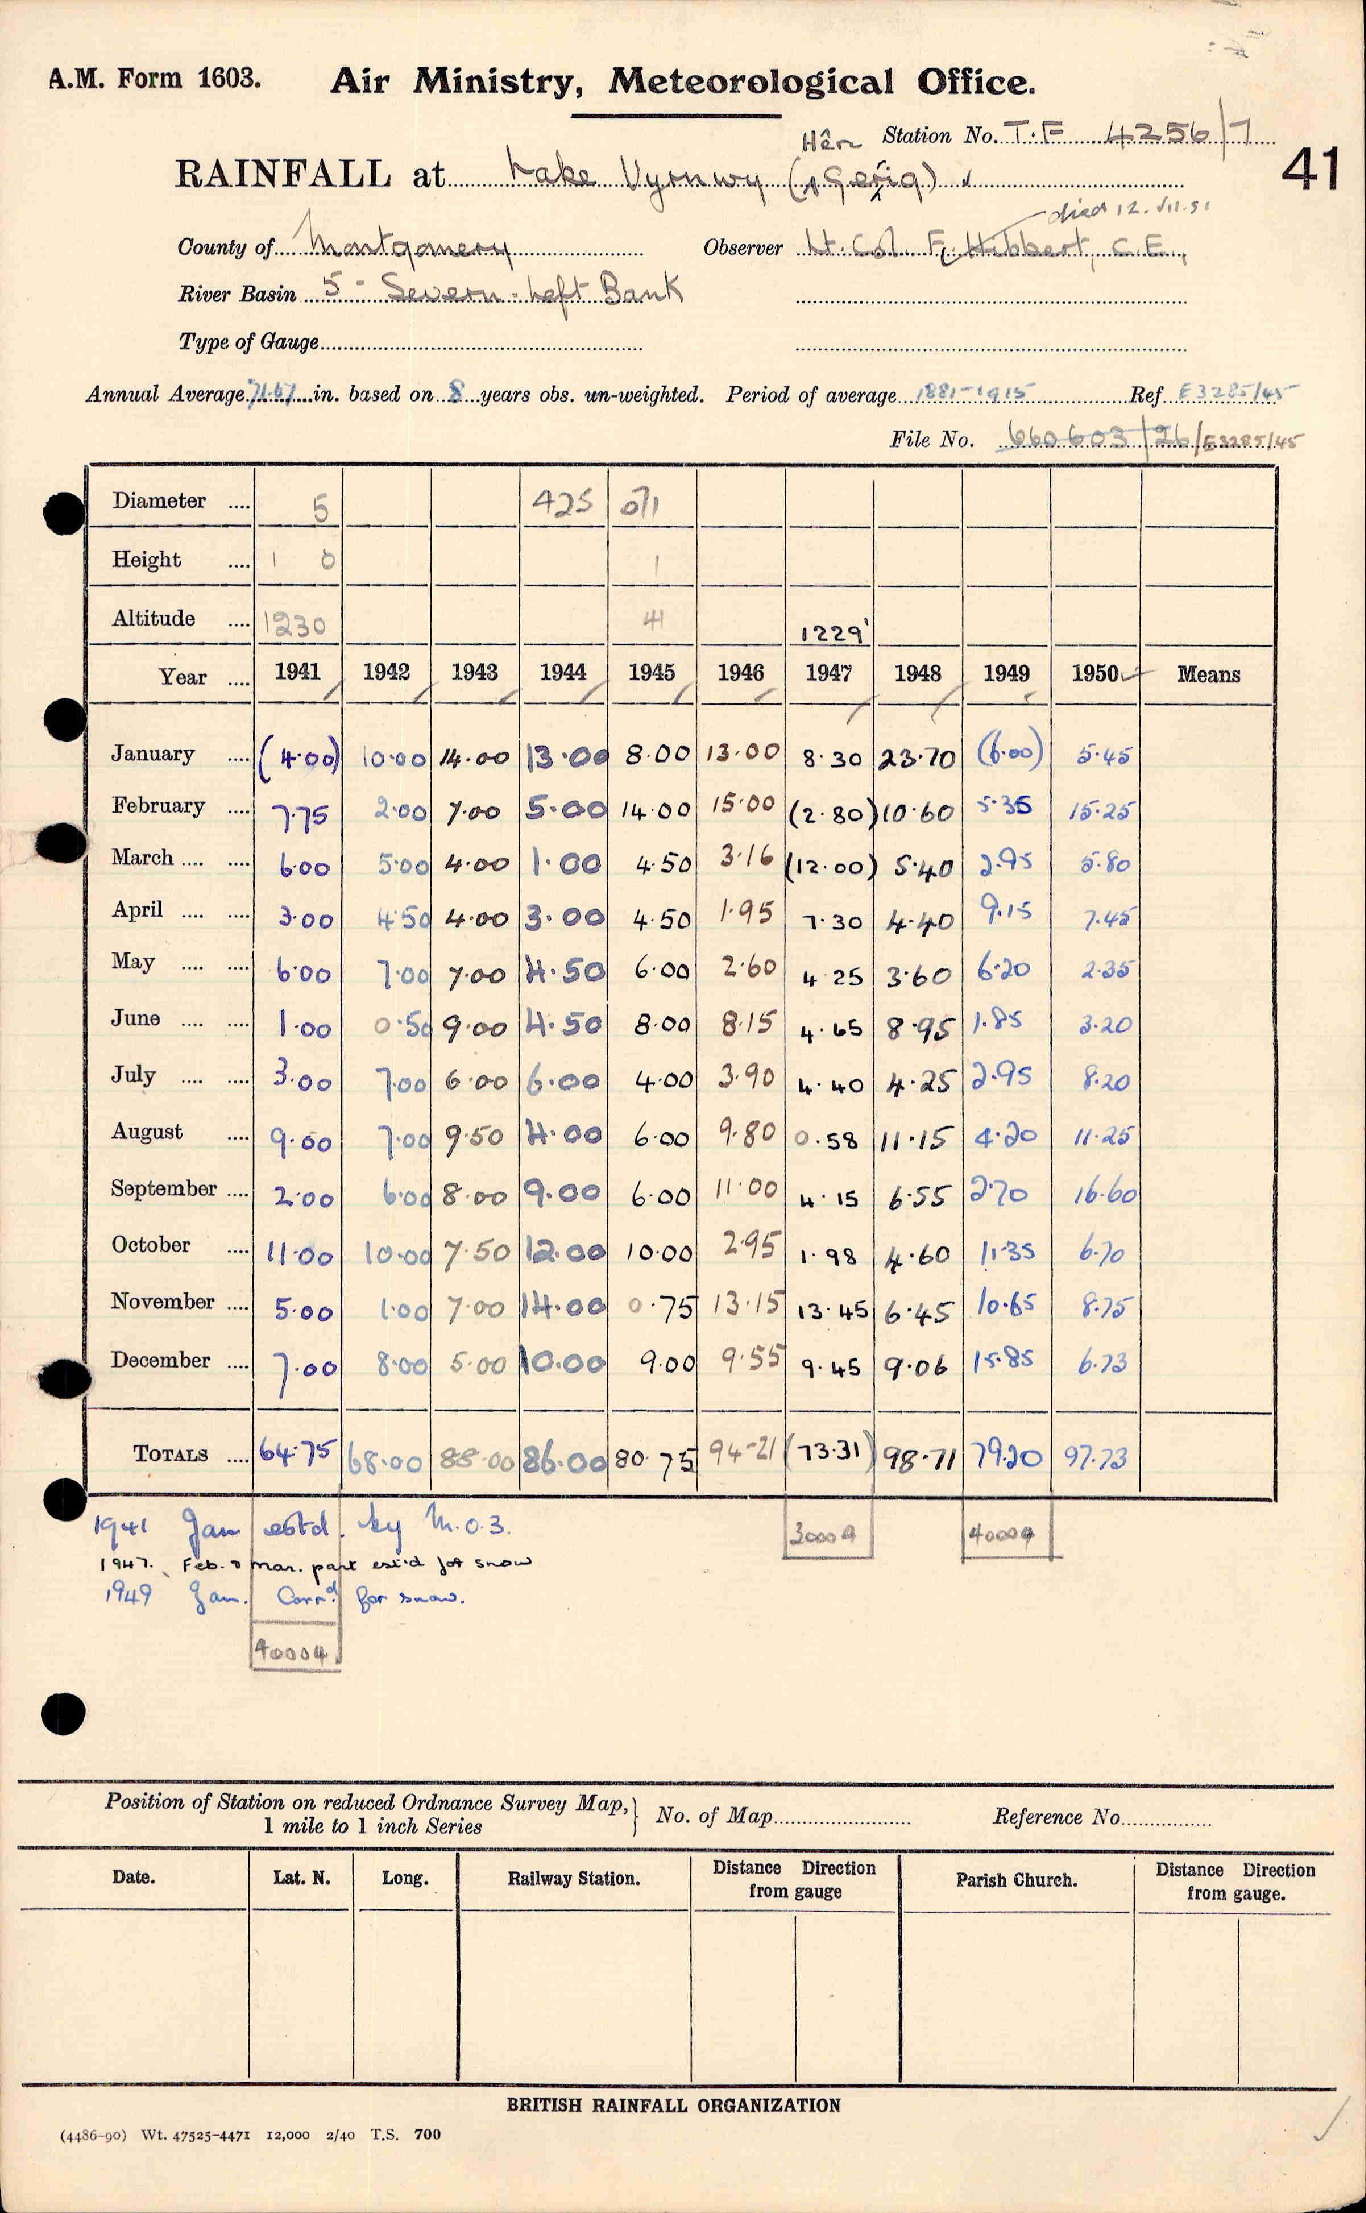 A.M. Form 1603. Air Ministry, Meteorological Office.
Hên Station No. T.F 4256/7
41
RAINFALL at Lake Vyrnwy (Gerig) ✓
died 12.VII.51
County of Montgomery Observer Lt. Col. F. Hibbert, C.E.,
River Basin 5 - Severn - Left Bank
Type of Gauge
Annual Average 71.67 in. based on 8 years obs. un-weighted. Period of average 1881-1915 Ref E3285/45
File No. 660603/26/E3285/45
Diameter .... 5 425 071
Height .... 1 0 1
Altitude .... 1230 41 1229'
Year .... 1941 1942 1943 1944 1945 1946 1947 1948 1949 1950 Means
January .... (4.00) 10.00 14.00 13.00 8.00 13.00 8.30 23.70 (6.00) 5.45
February .... 7.75 2.00 7.00 5.00 14.00 15.00 (2.80) 10.60 5.35 15.25
March .... .... 6.00 5.00 4.00 1.00 4.50 3.16 (12.00) 5.40 2.95 5.80
April .... .... 3.00 4.50 4.00 3.00 4.50 1.95 7.30 4.40 9.15 7.45
May .... .... 6.00 7.00 7.00 4.50 6.00 2.60 4.25 3.60 6.20 2.35
June .... .... 1.00 0.50 9.00 4.50 8.00 8.15 4.65 8.95 1.85 3.20
July .... .... 3.00 7.00 6.00 6.00 4.00 3.90 4.40 4.25 2.95 8.20
August .... 9.00 7.00 9.50 4.00 6.00 9.80 0.58 11.15 4.20 11.25
September .... 2.00 6.00 8.00 9.00 6.00 11.00 4.15 6.55 2.70 16.60
October .... 11.00 10.00 7.50 12.00 10.00 2.95 1.98 4.60 11.35 6.70
November .... 5.00 1.00 7.00 14.00 0.75 13.15 13.45 6.45 10.65 8.75
December .... 7.00 8.00 5.00 10.00 9.00 9.55 9.45 9.06 15.85 6.73
TOTALS .... 64.75 68.00 88.00 86.00 80.75 94.21 (73.31) 98.71 79.20 97.73
1941 Jan estd. by M.O.3. 30009 40009
1947. Feb. & Mar. part est'd for snow
1949 Jan. Corrd. for snow.
40004
Position of Station on reduced Ordnance Survey Map, No. of Map Reference No.
1 mile to 1 inch Series
Date. Lat. N. Long. Railway Station. Distance Direction from gauge Parish Church. Distance Direction from gauge.
BRITISH RAINFALL ORGANIZATION
(4486-90) Wt. 47525-4471 12,000 2/40 T.S. 700